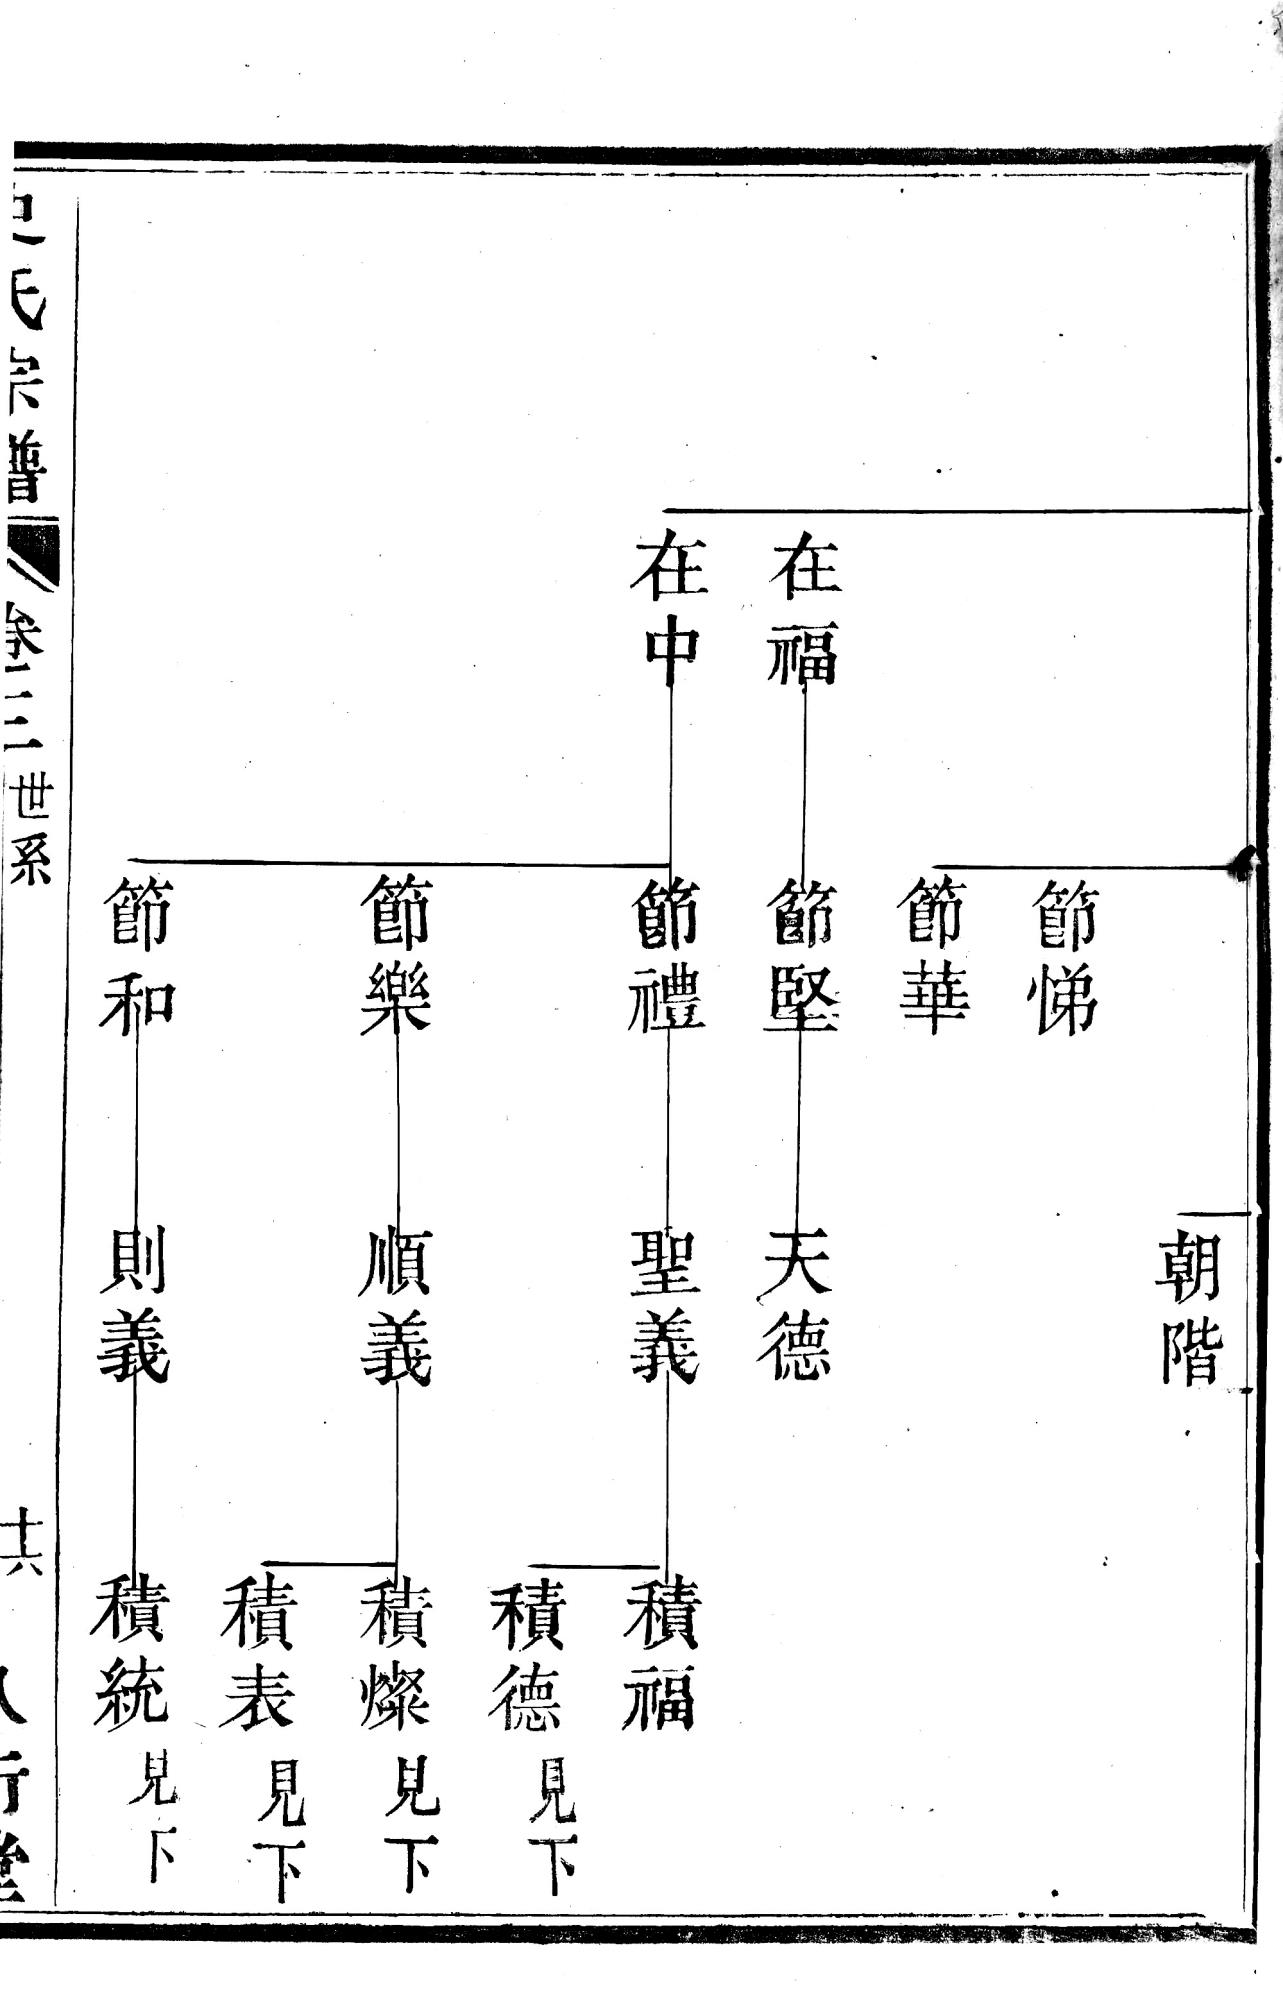 朝階
節悌
節華
在福 節堅 天德
在中 節禮 聖義 積福
積德 見下
節樂 順義 積燦 見下
積表 見下
節和 則義 積統 見下
史氏宗譜 卷 世系 十六 八行堂